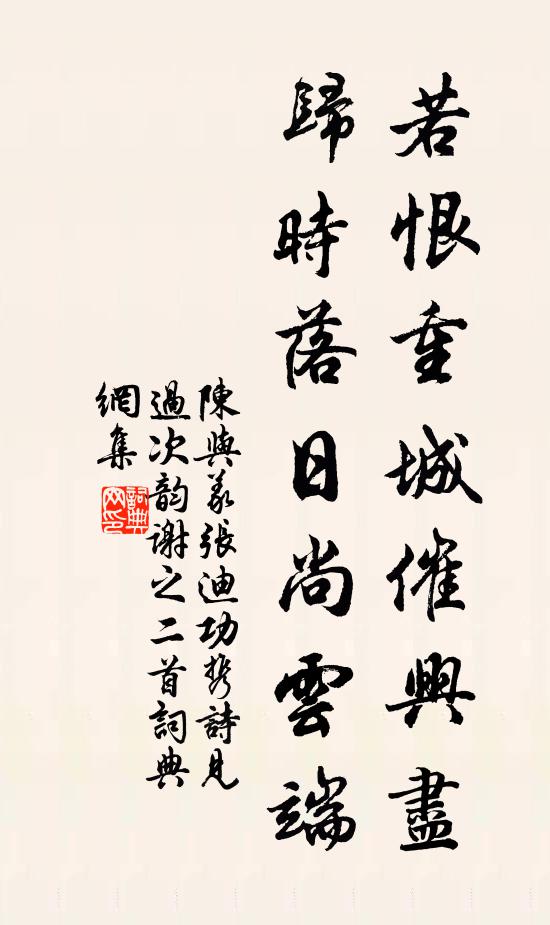 若恨重城催興盡
歸時落日尚雲端
陳與義張迪功攜詩見
過次韵謝之二首詞典
網集
詞典網印